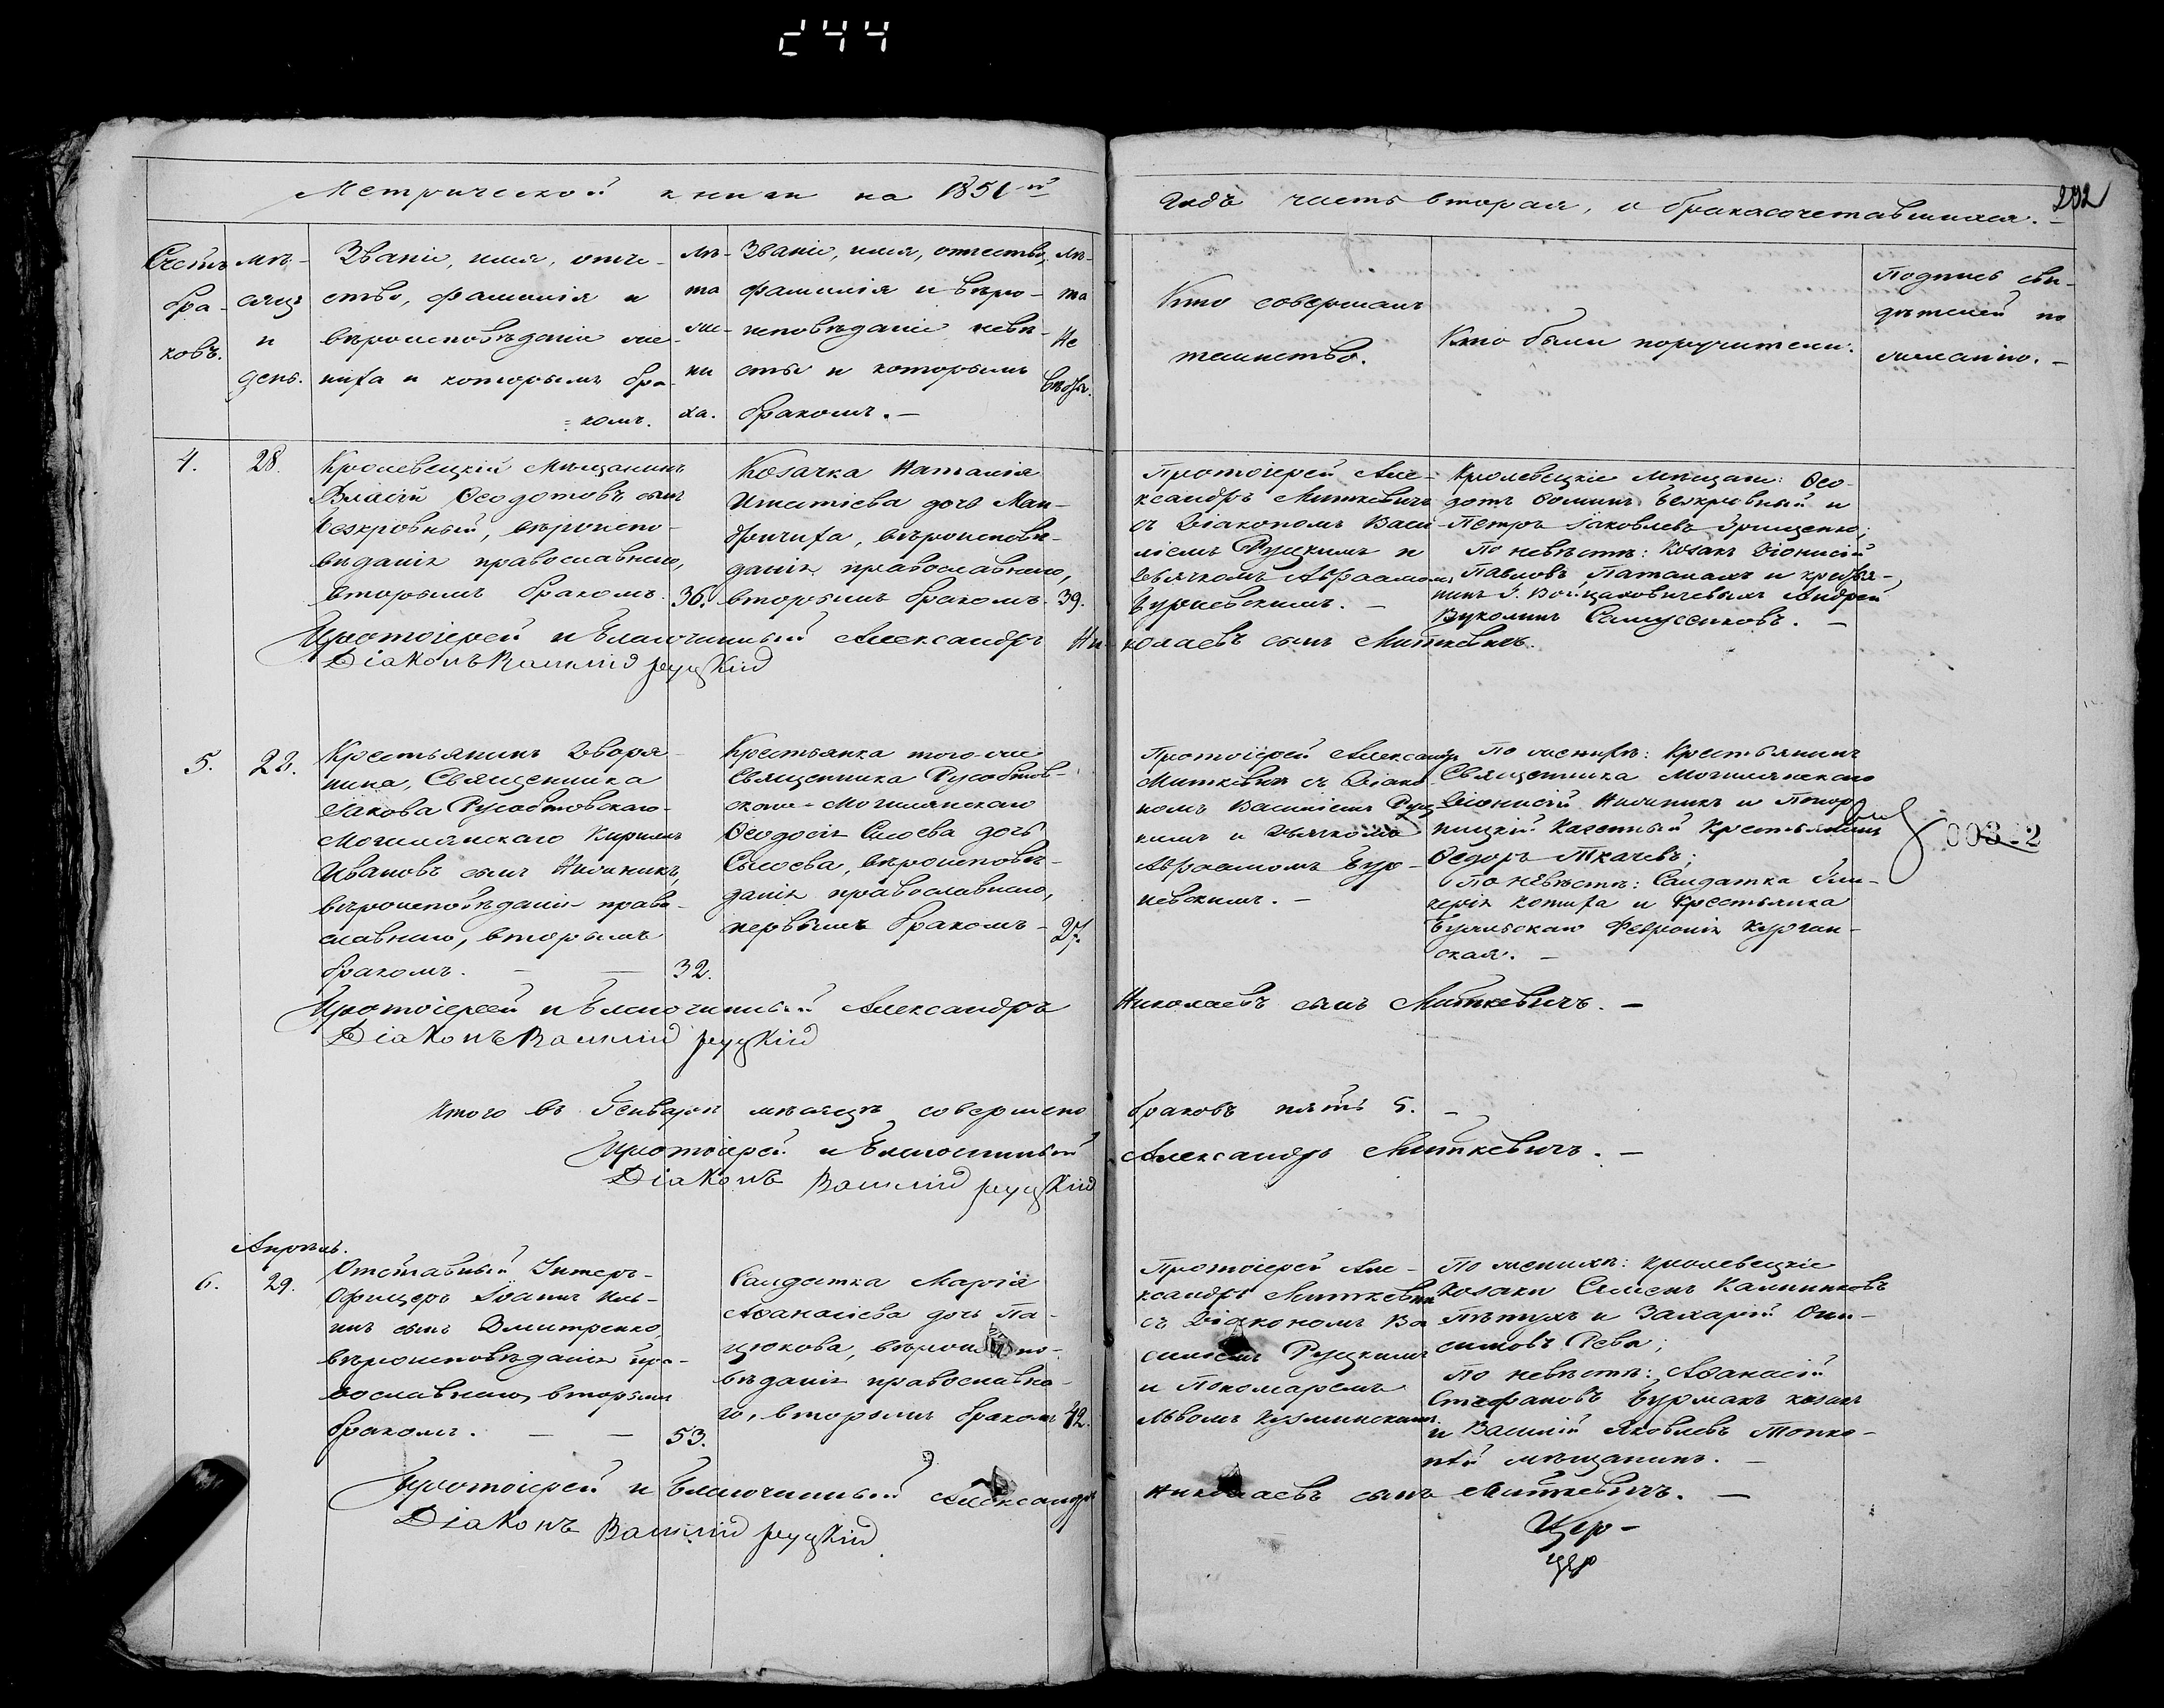 244
Метрической книги на 1851й
Годъ часть вторая, о бракасочетавшихся.
202
Счетъ бра-ковъ.
мѣ-сяцъ и день.
Званіе, имя, отче-
ство, фамилія и
вѣроисповѣданіе же-
ниха и которымъ бра-
комъ.
лѣ-та же-ни ха.
Званіе, имя, отчество,
фамилія и вѣро-
исповѣданіе невѣ-
сты и которымъ
бракомъ.
лѣ-та не вѣсты.
Кто совершалъ
таинство.
Кто были поручители.
Подпись сви-
дѣтелей по
желанію.
4. 28.
Кролевецкій мѣщанинъ
Власій Ѳеодотовъ сынъ
Безкровный, вѣроиспо-
вѣданія православнаго,
вторымъ бракомъ. 36.
Козачка Наталія
Игнатіева дочь Ман-
дричиха, вѣроисповѣ-
данія православнаго,
вторымъ бракомъ. 39.
Протоіерей Але-
ксандръ Миткевичъ
съ Діакономъ Васи-
ліемъ Руцкимъ и
дьячкомъ Авраамомъ
Кролевецкіе мѣщане: Ѳео-
дотъ Ѳоминъ Безкровный и
Петръ Іаковлевъ Грищенко;
По невѣстѣ: Козакъ Діонисій
Павловъ
Андрей
Вуколинъ
Протоіерей и Благочинный Александръ Ни-
колаевъ сынъ Миткевичъ.
Діаконъ Василій Руцкій
5.
Крестьянинъ Дворя-
нина, Священника
Іакова
Могилянскаго Кириллъ
Ивановъ сынъ
вѣроисповѣданія право-
славнаго, вторымъ
бракомъ. 32.
Крестьянка того-же
Священника
Могилянскаго
Ѳеодосія Сысоева дочь
Сысоева, вѣроисповѣ-
данія православнаго,
первымъ бракомъ 27.
Протоіерей Александръ
Миткевичъ съ Діако-
номъ Василіемъ Руц-
кимъ и дьячкомъ
Авраамомъ
По женихѣ: Крестьянинъ
Священника Могилянскаго
Діонисій и
казенный крестьянинъ
Ѳедоръ Ткачевъ;
По невѣстѣ: Салдатка Гли-
керія и Крестьянка
Февронія Курган-
ская.
003-2
Протоіерей и Благочинный Александръ
Николаевъ сынъ Миткевичъ.
Діаконъ Василій Руцкій
Итого въ Генварѣ мѣсяцѣ совершено
браковъ пять 5.
Протоіерей и Благочинный
Александръ Миткевичъ.
Діаконъ Василій Руцкій
Апрѣль.
6. 29.
Отставный Унтеръ-
Офицеръ Іоаннъ Иль-
инъ сынъ Дмитренко,
вѣроисповѣданія пра-
вославнаго, вторымъ
бракомъ. 53.
Салдатка Марія
Аѳанасіева дочь Па-
цюкова, вѣроиспо-
вѣданія православна-
го, вторымъ бракомъ 42.
Протоіерей Але-
ксандръ Миткевичъ
съ Діакономъ Ва-
силіемъ Руцкимъ
и Пономаремъ
Львомъ
По женихѣ: Кролевецкіе
козаки Симеонъ
Пѣтухъ и Захарій Они-
симовъ Рева;
По невѣстѣ: Аѳанасій
Стефановъ Бурмакъ козакъ
и Василій Яковлевъ
мѣщанинъ.
Протоіерей и Благочинный Александръ
Николаевъ сынъ Миткевичъ.
Діаконъ Василій Руцкій
Цер-